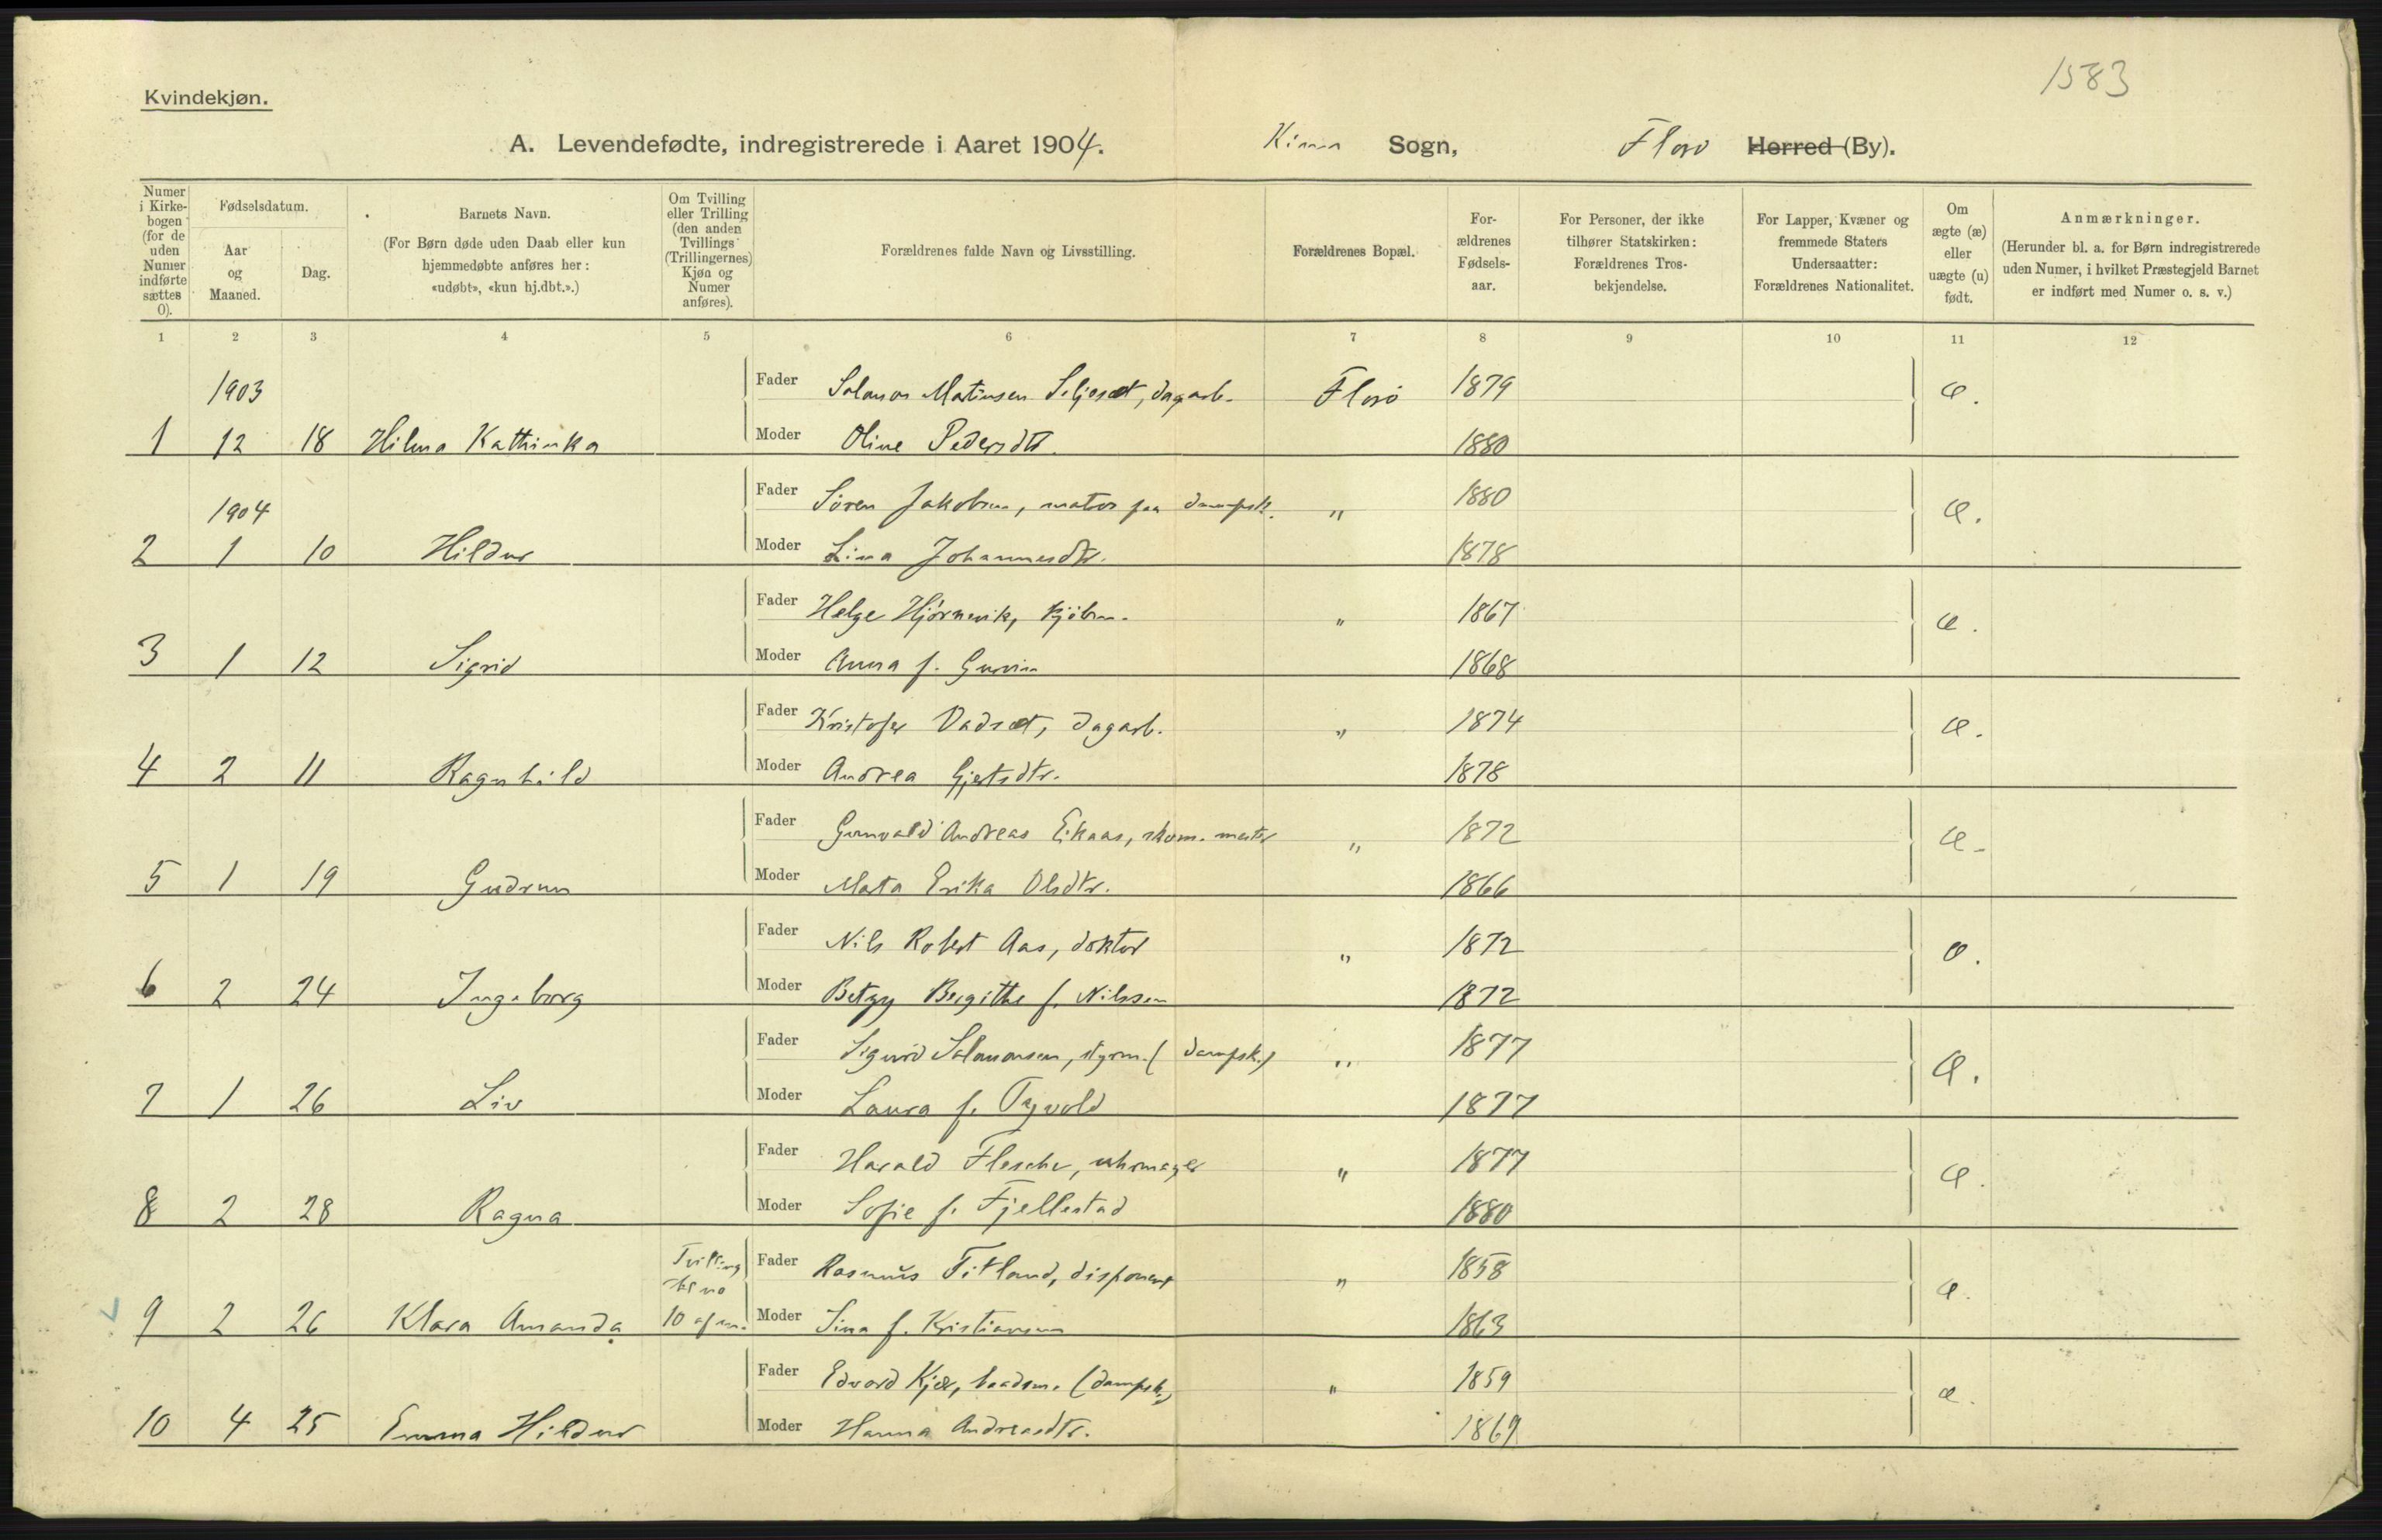 1583
Kvindekjøn.
A. Levendefødte, indregistrerede i Aaret 1904. Kinn Sogn, Florø Herred (By).
Numer i Kirkebogen (for de uden Numer indførte sættes 0). | Fødselsdatum. Aar og Maaned. | Dag. | Barnets Navn. (For Børn døde uden Daab eller kun hjemmedøbte anføres her: «udøbt», «kun hj.dbt.».) | Om Tvilling eller Trilling (den anden Tvillings (Trillingernes) Kjøn og Numer anføres). | Forældrenes fulde Navn og Livsstilling. | Forældrenes Bopæl. | Forældrenes Fødselsaar. | For Personer, der ikke tilhører Statskirken: Forældrenes Trosbekjendelse. | For Lapper, Kvæner og fremmede Staters Undersaatter: Forældrenes Nationalitet. | Om ægte (æ) eller uægte (u) født. | Anmærkninger. (Herunder bl. a. for Børn indregistrerede uden Numer, i hvilket Præstegjeld Barnet er indført med Numer o. s. v.)
1 2 3 4 5 6 7 8 9 10 11 12
1903 Fader Salamon Matiasen Seljeset, dagarb. Florø 1879 æ.
1 12 18 Hilma Kathinka Moder Oline Pedersdtr. 1880
1904 Fader Søren Jakobsen, matros paa dampsk. " 1880 æ.
2 1 10 Hildur Moder Lina Johannesdtr. 1878
Fader Helge Hjørnevik, kjøbm. " 1867 æ.
3 1 12 Sigrid Moder Anna f. 1868
Fader Kristofer Vadset, dagarb. " 1874 æ.
4 2 11 Ragnhild Moder Andrea Gjertsdtr. 1878
Fader Gunvald Andreas Eikaas, skom. mester " 1872 æ.
5 1 19 Gudrun Moder Marta Erika Olsdtr. 1866
Fader Nils Robert Aas, doktor " 1872 æ.
6 2 24 Ingeborg Moder Betzy Bergithe f. Nilssen 1872
Fader Sigurd Salamonsen, styrm. (dampsk.) " 1877 æ.
7 1 26 Liv Moder Laura f. Tyvold 1877
Fader Harald Flesche, uhrmager " 1877 æ.
8 2 28 Ragna Moder Sofie f. Fjellestad 1880
Tvilling Fader Rasmus Titland, disponent " 1858 æ.
9 2 26 Klara Amanda 10 Moder Sina f. Kristiansen 1863
Fader Edvard Kjær, baadsm. (dampsk.) " 1859 æ.
10 4 25 Emma Hildur Moder Hanna Andreasdtr. 1869